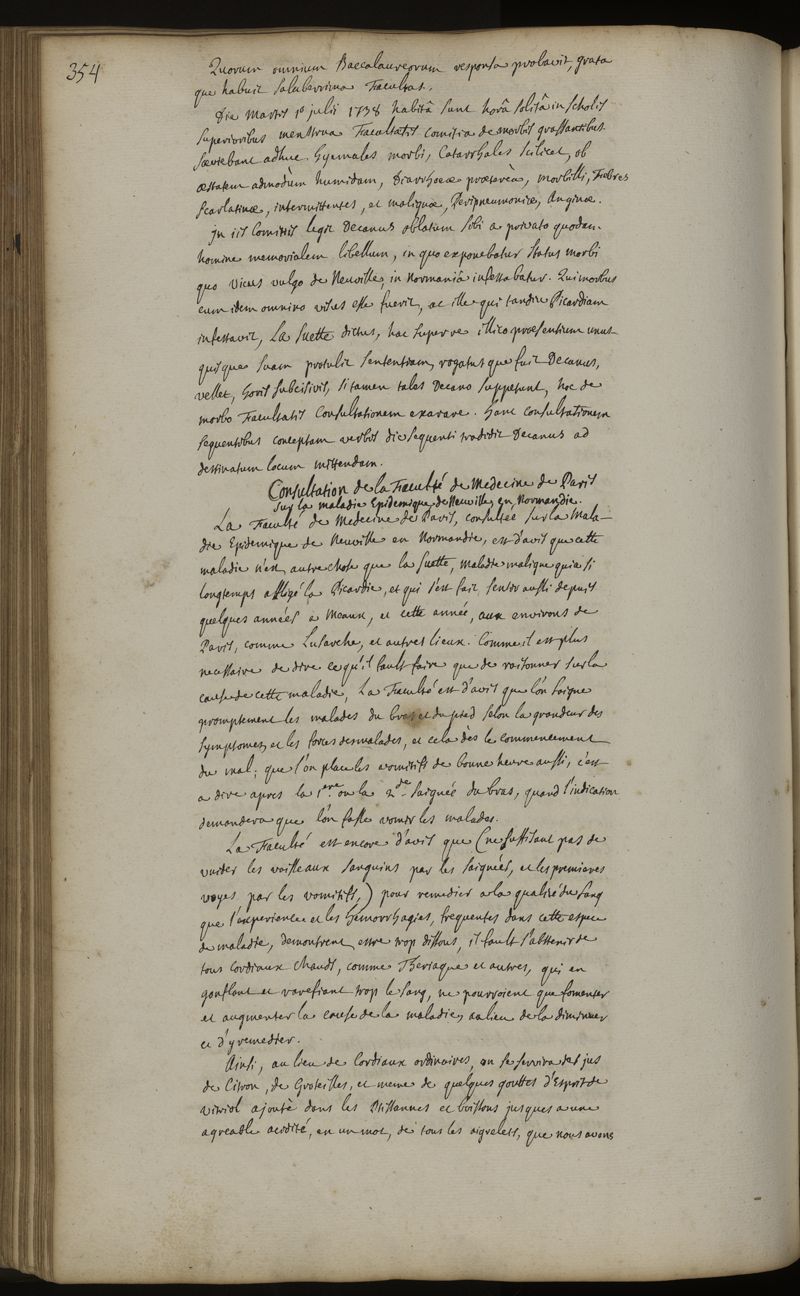 354
Quorum omnium Baccalaureorum responsa probavit, grata
que habuit saluberrima Facultas.
Die Martis 1â julii 1738 habita sunt horâ solitâ in scholis
superioribus menstrua Facultatis Comitia de morbis grassantibus.
Sævebant adhuc Hyemales morbi, Catarrhales scilicet, ob
æstatem admodùm humidam, Diarrhoeæ prætereà, morbilli, Febres
Scarlatinæ, intermittentes, et malignæ, Peripneumoniæ, Anginæ.
In iis Comitiis legit Decanus oblatum sibi a privato quodam
homine memorialem libellum, in quo exponebatur status morbi
quo vicus vulgo de Neuville, in Normaniâ infestabatur. Qui morbus
cum idem omnino visus esse fuerit, ac ille qui tandiu Picardiam
infestavit, La Suette dictus, hac super re illico præsentium unus
quisque suam protulit sententiam, rogatus que fuit Decanus,
vellet, horis subcisivis, si tamen tales Decano suppetunt, hoc de
morbo Facultatis Consultationem exarare. Hanc consultationem
sequentibus conceptam verbis die sequenti tradidit Decanus ad
destinatum locum mittendam.
Consultation de la Faculté de Medecine de Paris
sur la maladie Epidemique de Neuville, en Normandie.
La Faculté de Medecine de Paris, consultée sur la Mala-
die Epidemique de Neuville en Normandie, est d'avis que cette
maladie n'est autre chose que la suette, maladie maligne qui a si
longtemps affligé la Picardie, et qui s'est fait sentir aussi depuis
quelques années a Meaux, et cette année, aux environs de
Paris, comme Lusarche, et autres lieux. Comme il est plus
necessaire de dire ce qu'il fault faire que de raisonner sur la
cause de cette maladie, La Faculté est d'avis que l'on saigne
promptement les malades du bras et du pied selon la grandeur des
symptomes, et les forces des malades, et cela dès le commencement
du mal; que l'on place les vomitifs de bonne heure aussi, c'est
a dire apres la 1ere ou la 2de saignée du bras, quand l'indication
demandera que l'on fasse vomir les malades.
La Faculté est encore d'avis que (ne suffisant pas de
vuider les vaisseaux sanguins par les saignées, et les premieres
voyes par les vomitifs,) pour remedier a la qualité du sang
que l'experience et les hémorrhagies, frequentes dans cette espece
de maladie, demontrent estre trop dissous, il fault s'abstenir de
tous cordiaux chauds, comme Theriaque et autres, qui en
gonflant et rarefiant trop le sang, ne pourroient que fomenter
et augmenter la cause de la maladie, au lieu de la diminuer
et d'y remedier.
Ainsi, au lieu de Cordiaux ordinaires, on se servira des jus
de Citron, de Groseilles, et meme de quelques gouttes d'Esprit de
vitriol ajouté dans les Ptissannes et boissons jusques a une
agreable acidité, en un mot, de tous les aigrelets, que nous avons